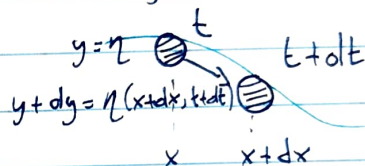 t
y=η
t+dt
y+dy=η(x+dx,t+dt)
x
x+dx